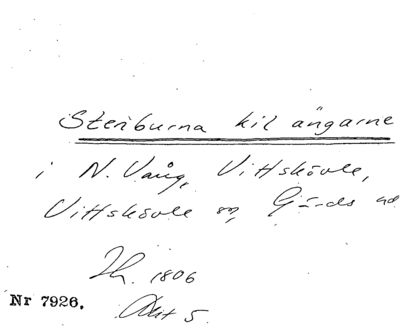 Stenburna kil ängarne
i N. Vång, Vittskövle,
Vittskövle sn, Gärds hd
Lh. 1806
Nr 7926. Akt 5.